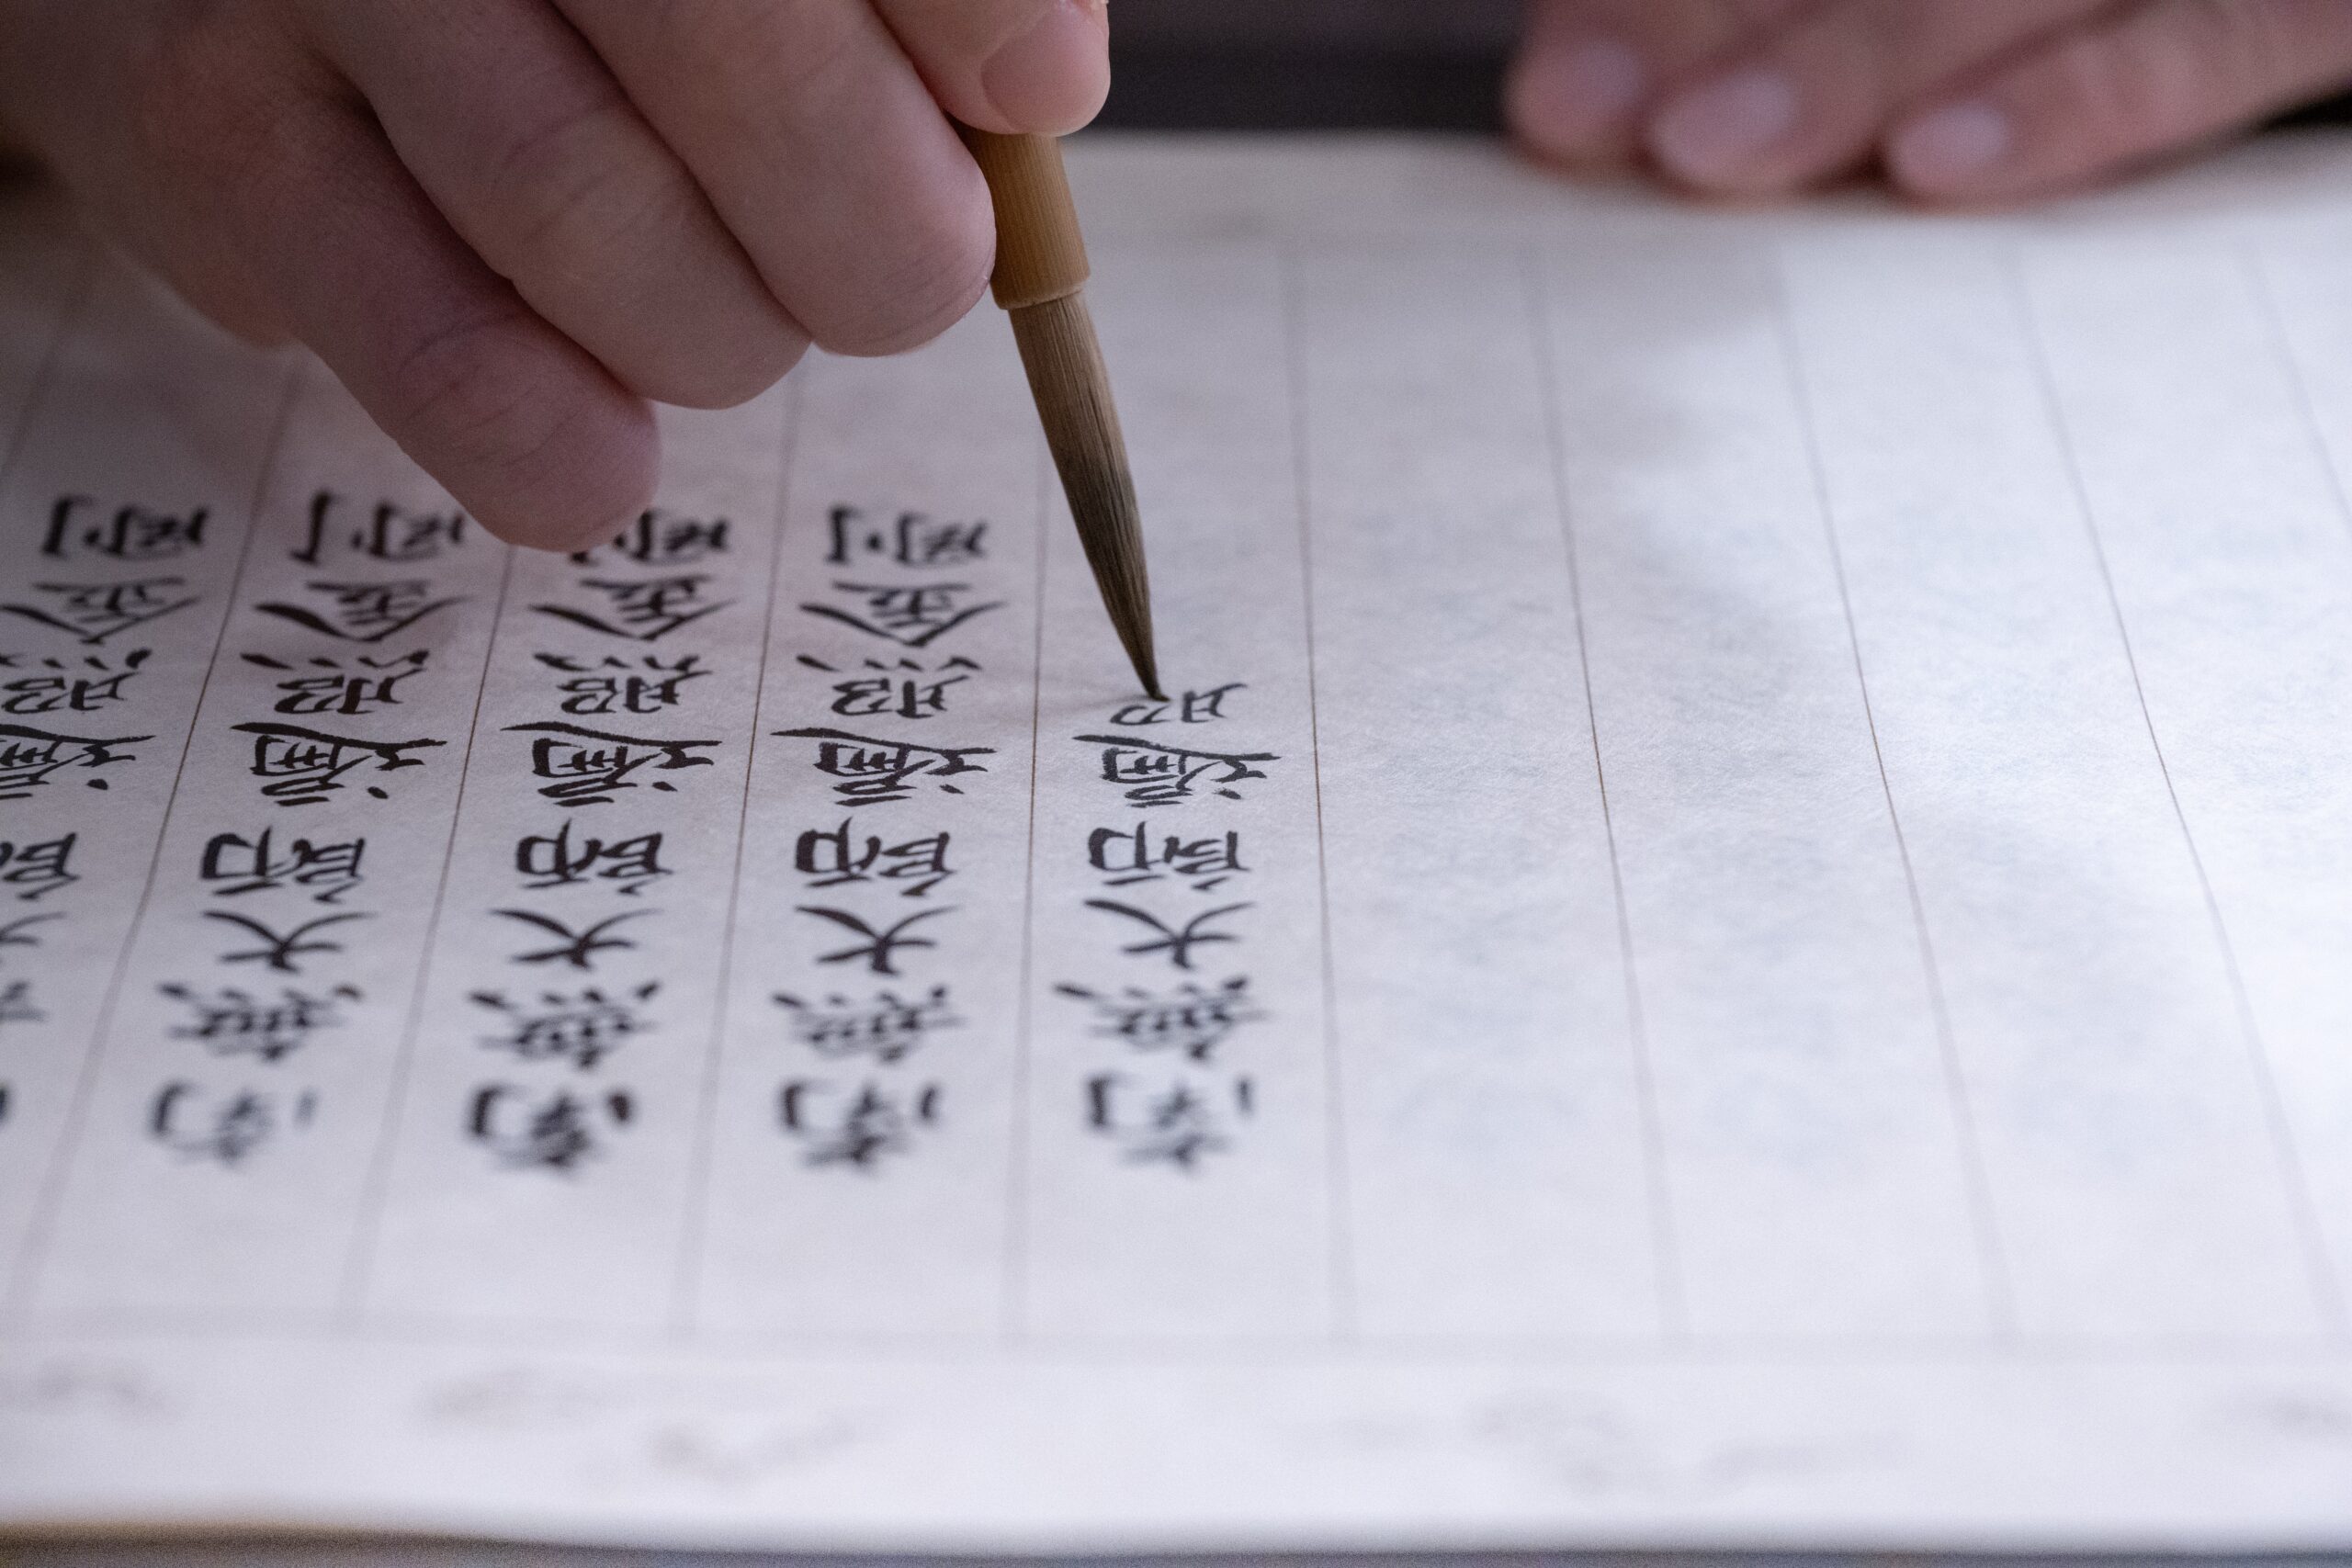 遍照金剛
南無大師遍照金剛
南無大師遍照金剛
南無大師遍照金剛
南無大師遍昭